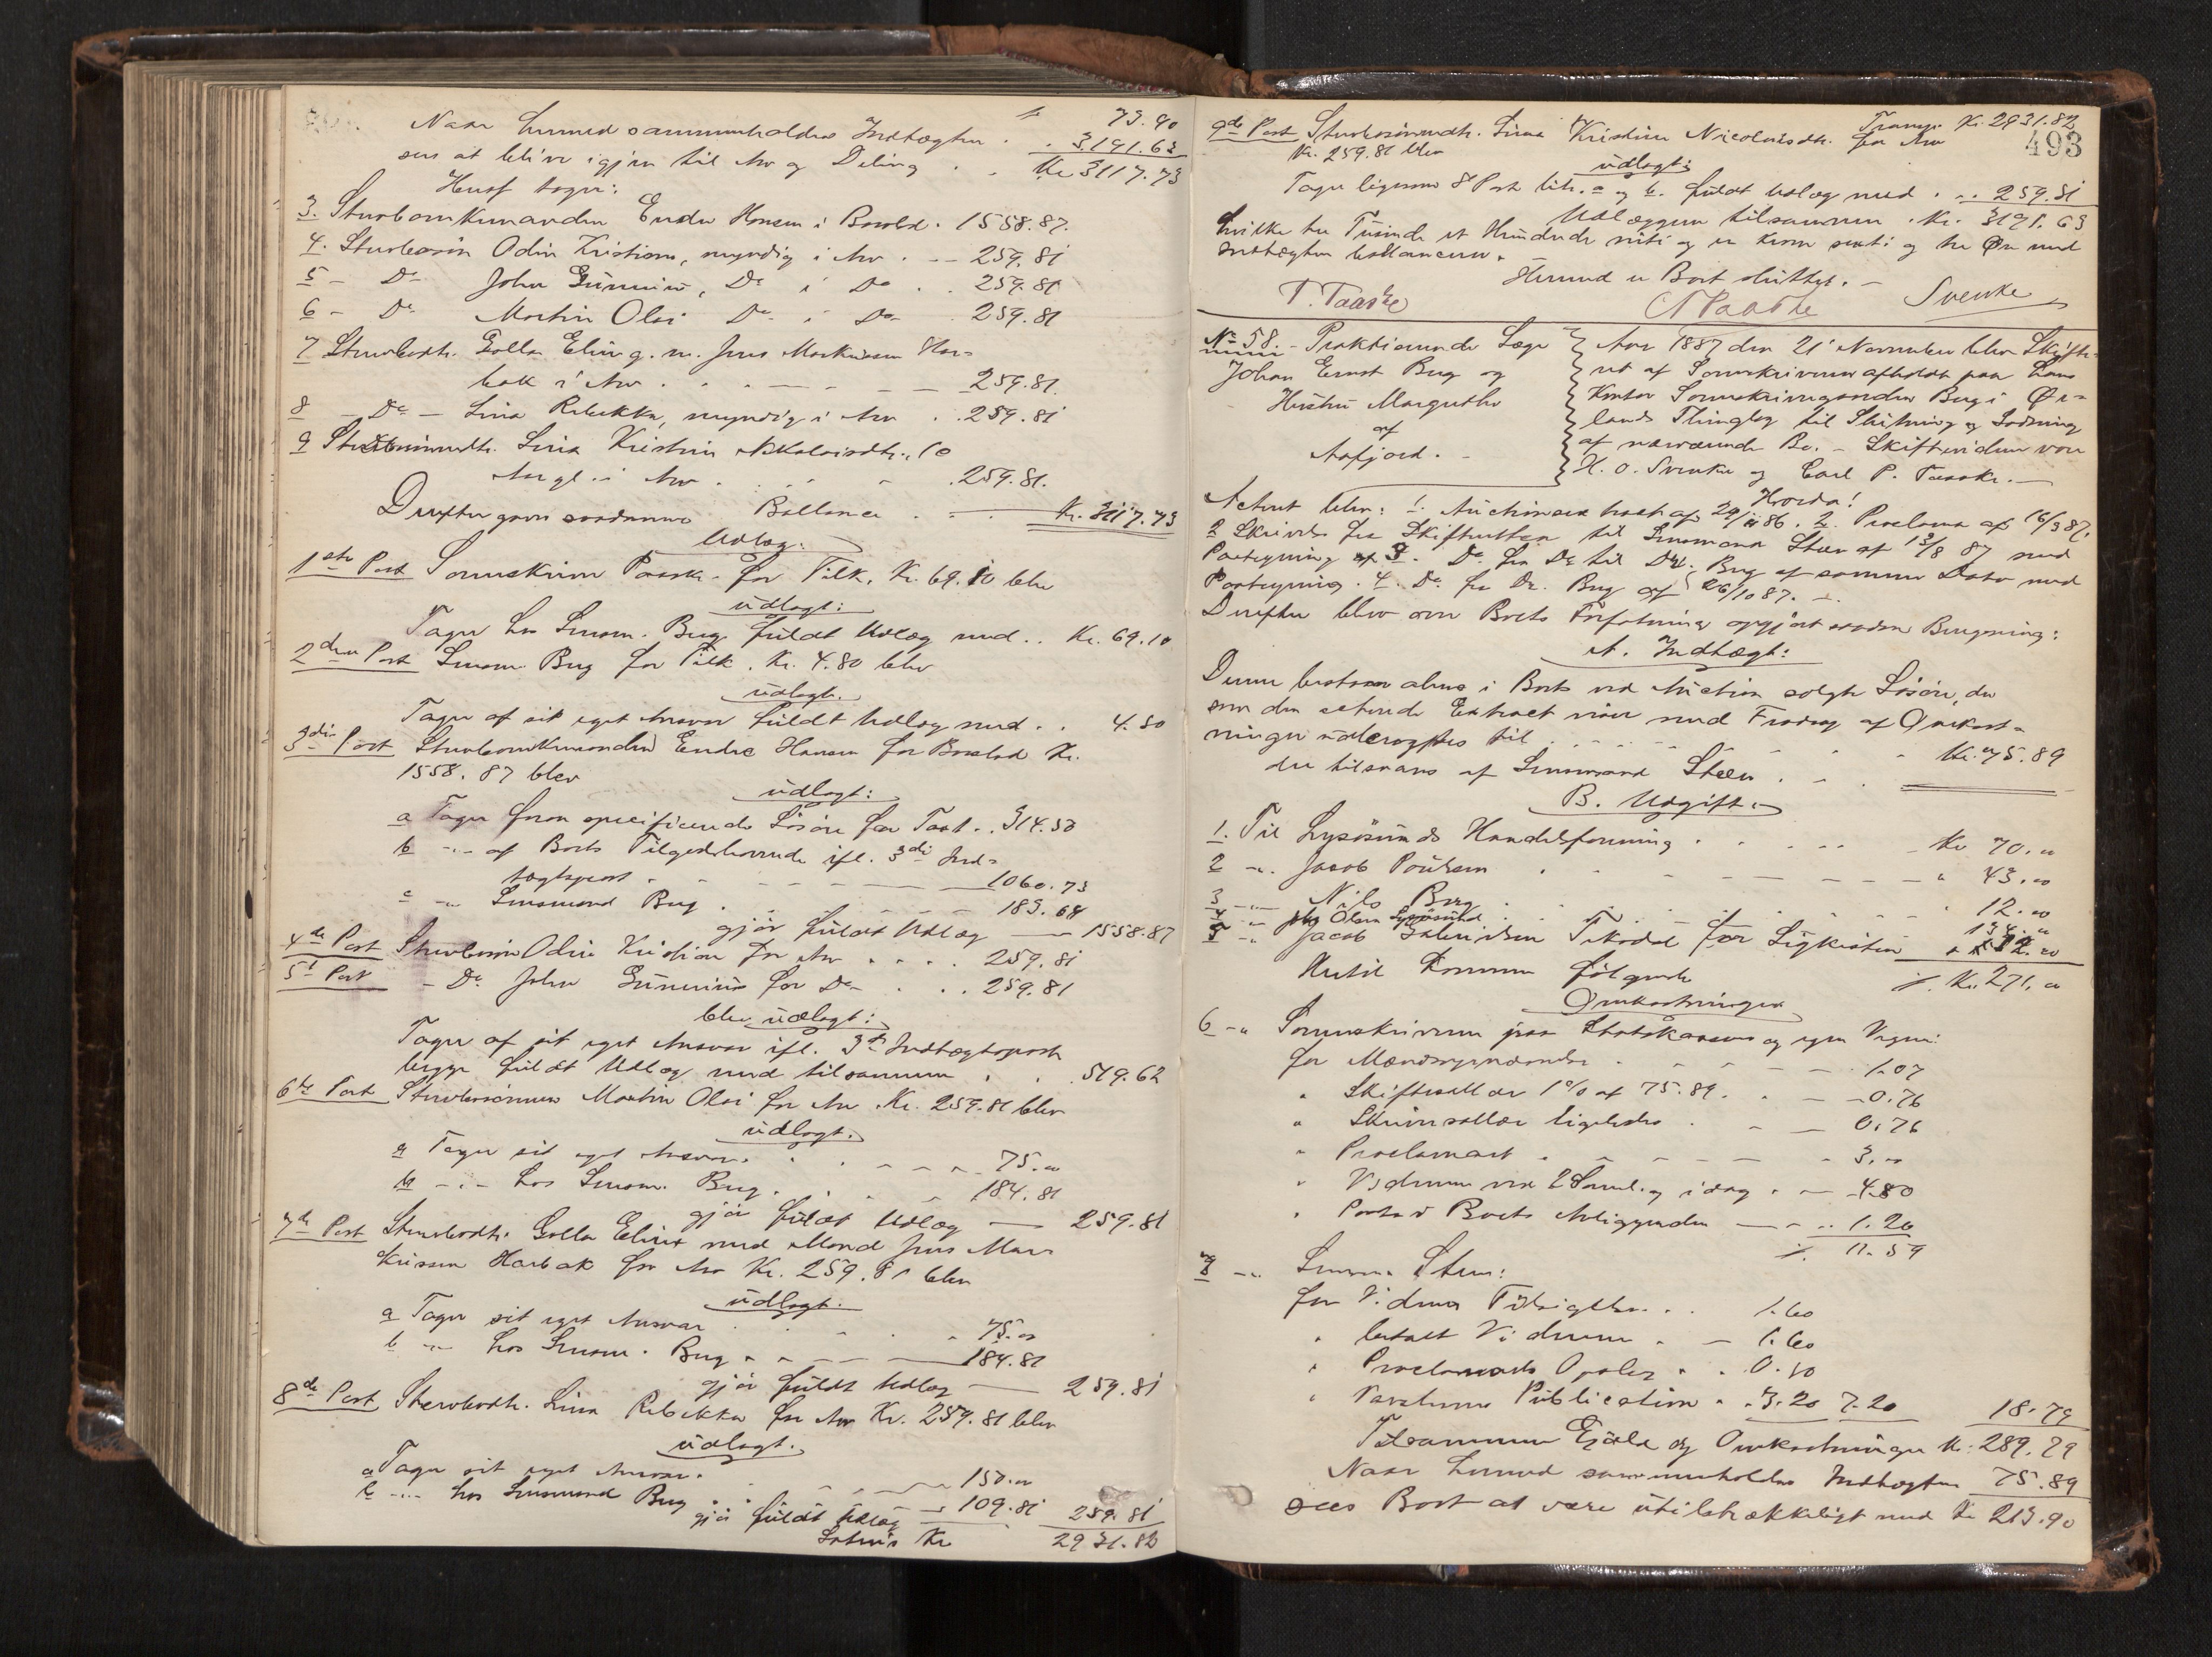 73.90
Naar hermed sammenholdes Indtægten . . 3,191.63
sees at blive igjen til Arv og Deling . . Kr. 3117.73
Heraf tager:
3. Sterbomkemanden Endre Hansen i Boslod. 1558.87.
4. Sterbosön Odin Kristian, myndig i Arv . -- 259.81
5 - Do John Gunerius, Do i Do . . 259.81
6 - Do Martin Olai Do i Do 259.81
7 Sterbodtr. Golla Elin g. m. Jens Markussen Har-
bak i Arv . . . - - - 259.81.
8 - Do - Lina Rebekka, myndig i Arv . . 259.81
9 Sterbosönnedtr. Lina Kristine Nikolaisdtr., 10
Aar gl. i Arv . . . - .259.81.
Derefter gaves saadanne Ballance . - Kr. 3117.73
Udlæg:
1ste Post Sorenskriver Paaske for Tilk. Kr. 69.10 blev
udlagt:
Tager hos Lensm. Berg fuldt Udlæg med . . Kr. 69.10
2den Post Lensm. Berg for Tilk. Kr. 4.80 blev
udlagt.
Tager af sit eget Ansvar fuldt Udlæg med . . 4.80
3die Post Sterbomkemanden Endre Hansen for Boslod Kr.
1558.87 blev
udlagt:
a Tager foran specificerede Lösöre for Taxt . . 314.50
b -"- af Boets Tilgodehavende ifl. 3die Ind-
tægtspost . - - - - 1060.73
c -"- Lensmand Berg . - - 183.64
gjör fuldt Udlæg - 1558.87
4de Post Sterbosön Odin Kristian for Arv . . . . 259.81
5te Post - Do John Gunerius for Do . . . 259.81
blev udlagt:
Tager af sit eget Ansvar ifl. 3die Indtægtspost
begge fuldt Udlæg med tilsammen . . . 519.62
6te Post Sterbosönnen Martin Olai for Arv Kr. 259.81 blev
udlagt.
a Tager sit eget Ansvar . . - - - 75."
b -"- hos Lensm. Berg . . . - 184.81
gjör fuldt Udlæg - 259.81
7de Post Sterbodtr. Golla Elin med Mand Jens Mar-
kussen Harbak for Arv Kr. 259.81 blev
udlagt.
a Tager sit eget Ansvar . - . - 75."
b -"- hos Lensm. Berg . - - - 184.81
gjör fuldt Udlæg - 259.81
8de Post Sterbodtr. Lina Rebekka for Arv Kr. 259.81 blev
udlagt.
a Tager sit eget Ansvar . - - 150."
b -"- hos Lensmand Berg . . - 109.81
gjör fuldt Udlæg - 259.81
Latus Kr. 2931.82
Transp. Kr. 2931.82
493
9de Post Sterbosönnedtr. Lina Kristine Nicolaisdtr. for Arv
Kr. 259.81 blev
udlagt:
Tager ligesom 8 Post litr. a og b. fuldt Udlæg med . . . 259.81
Udlæggene tilsammen . Kr. 3191.63
hvilke tre Tusinde et Hundrede niti og en Krone sexti og tre Öre med
Indtægten ballancerer.
Hermed er Boet sluttet. -
P. Paaske C P Paaske Svenke
No 58. - Praktiserende Læge
Johan Ernst Berg og
Hustru Margrethe
af
Aafjord. -
Aar 1887 den 21 November blev Skifte-
ret af Sorenskriveren afholdt paa hans
Kontor Sorenskrivergaarden Berg i Ør-
lands Thinglag til Slutning og Lodning
af nærværende Bo. - Skiftevidner vare
H. O. Svenke og Carl P. Paaske. -
Hvorda!
Acteret blev: 1. Auctionsextract af 29/11 86. 2. Proclama af 16/3 87.
2 Skrivelse fra Skifteretten til Lensmand Steen af 13/8 87 med
Paategning af 3. Do fra Do til Dr. Berg af samme Dato med
Paategning. 4. Do fra Dr. Berg af 26/10 87. -
Derefter blev over Boets Forfatning opgjört saadan Beregning:
A. Indtægt:
Denne bestaar alene i Boets ved Auction solgte Lösöre, der
som den acterede Extract viser med Fradrag af Omkost-
ninger udbragtes til . . . - - - - Kr. 75.89
der tilsvares af Lensmand Steen . - .
B. Udgift.
1. Til Lysösunds Handelsforening . . . . . Kr 70."
2 -". Jacob Poulsen . . - - - - - " 43."
3 -"- Nils Berg . . . - . . . 12."
4 -"- Olsen Lysösund . . . 134."
5 -"- Jacob Tekodal for Ligkister 12."
Hertil kommer fölgende ÷ Kr. 271."
Omkostninger
6 -" Sorenskriveren paa Statskassens og egne Vegne:
for . . - - - 1.07
" Skiftesallær 1% af 75.89 . . - - 0.76
" Skriversallær ligeledes . - - 0.76
" Proclamaet . - - - - 3."
" Vidnerne ved 2 Saml. og idag . - - 4.80
" Porto i Boets Anliggender - - .. 1.20
÷ 11.59
7 -" Lensm. Steen:
for Vidners Tilsigelse . . 1.60
" betalt Vidnerne . - 1.60
" Proclamaets Opslag . . 0.80
" Publication . . 3.20 7.20 18.79
Tilsammen Gjæld og Omkostninger Kr. 289.79
Naar hermed sammenholdes Indtægten 75.89
sees Boet at være utilstrækkeligt med Kr 213.90